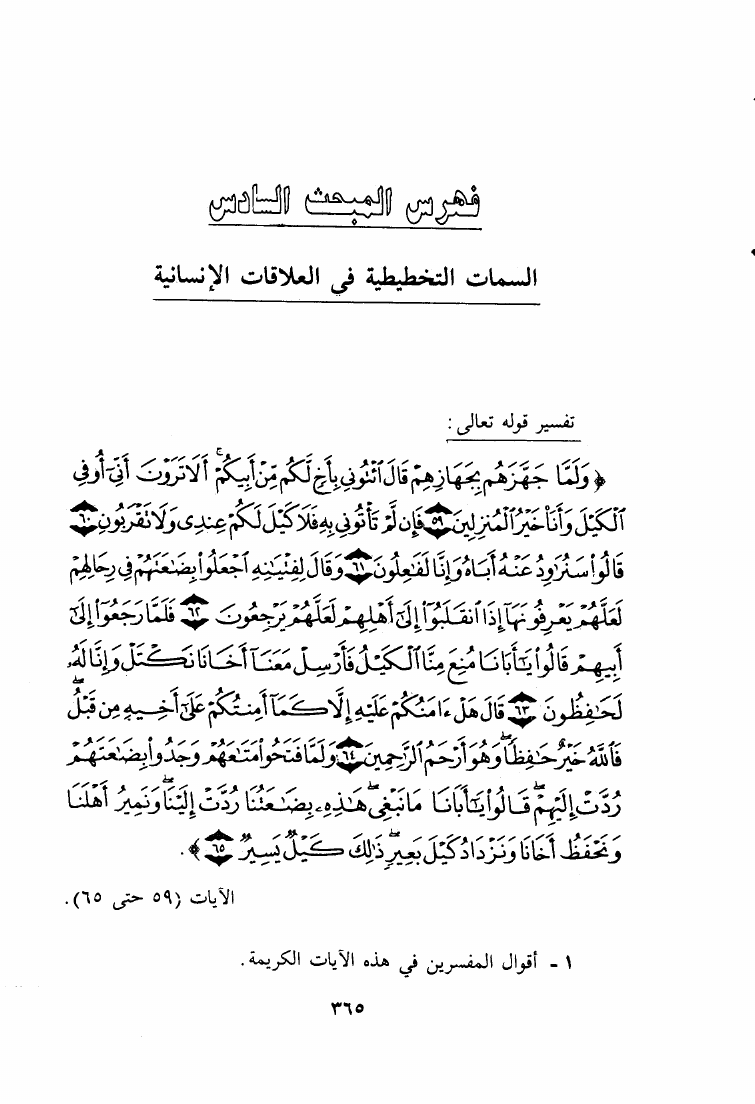 فهرس المبحث السادس
السمات التخطيطية في العلاقات الإنسانية
تفسير قوله تعالى :
﴿ وَلَمَّا جَهَّزَهُم بِجَهَازِهِمْ قَالَ ٱئْتُونِي بِأَخٍ لَّكُم مِّنْ أَبِيكُمْ ۚ أَلَا تَرَوْنَ أَنِّيٓ أُوفِي
ٱلْكَيْلَ وَأَنَا۠ خَيْرُ ٱلْمُنزِلِينَ ٥٩ فَإِن لَّمْ تَأْتُونِي بِهِۦ فَلَا كَيْلَ لَكُمْ عِندِي وَلَا تَقْرَبُونِ ٦٠
قَالُوا۟ سَنُرَٰوِدُ عَنْهُ أَبَاهُ وَإِنَّا لَفَٰعِلُونَ ٦١ وَقَالَ لِفِتْيَٰنِهِ ٱجْعَلُوا۟ بِضَٰعَتَهُمْ فِي رِحَالِهِمْ
لَعَلَّهُمْ يَعْرِفُونَهَآ إِذَا ٱنقَلَبُوٓا۟ إِلَىٰٓ أَهْلِهِمْ لَعَلَّهُمْ يَرْجِعُونَ ٦٢ فَلَمَّا رَجَعُوٓا۟ إِلَىٰٓ
أَبِيهِمْ قَالُوا۟ يَٰٓأَبَانَا مُنِعَ مِنَّا ٱلْكَيْلُ فَأَرْسِلْ مَعَنَآ أَخَانَا نَكْتَلْ وَإِنَّا لَهُۥ
لَحَٰفِظُونَ ٦٣ قَالَ هَلْ ءَامَنُكُمْ عَلَيْهِ إِلَّا كَمَآ أَمِنتُكُمْ عَلَىٰٓ أَخِيهِ مِن قَبْلُ ۖ
فَٱللَّهُ خَيْرٌ حَٰفِظًا ۖ وَهُوَ أَرْحَمُ ٱلرَّٰحِمِينَ ٦٤ وَلَمَّا فَتَحُوا۟ مَتَٰعَهُمْ وَجَدُوا۟ بِضَٰعَتَهُمْ
رُدَّتْ إِلَيْهِمْ ۖ قَالُوا۟ يَٰٓأَبَانَا مَا نَبْغِي ۖ هَٰذِهِۦ بِضَٰعَتُنَا رُدَّتْ إِلَيْنَا ۖ وَنَمِيرُ أَهْلَنَا
وَنَحْفَظُ أَخَانَا وَنَزْدَادُ كَيْلَ بَعِيرٍ ۖ ذَٰلِكَ كَيْلٌ يَسِيرٌ ٦٥ ﴾ .
الآيات (٥٩ حتى ٦٥) .
١ - أقوال المفسرين في هذه الآيات الكريمة .
٣٦٥